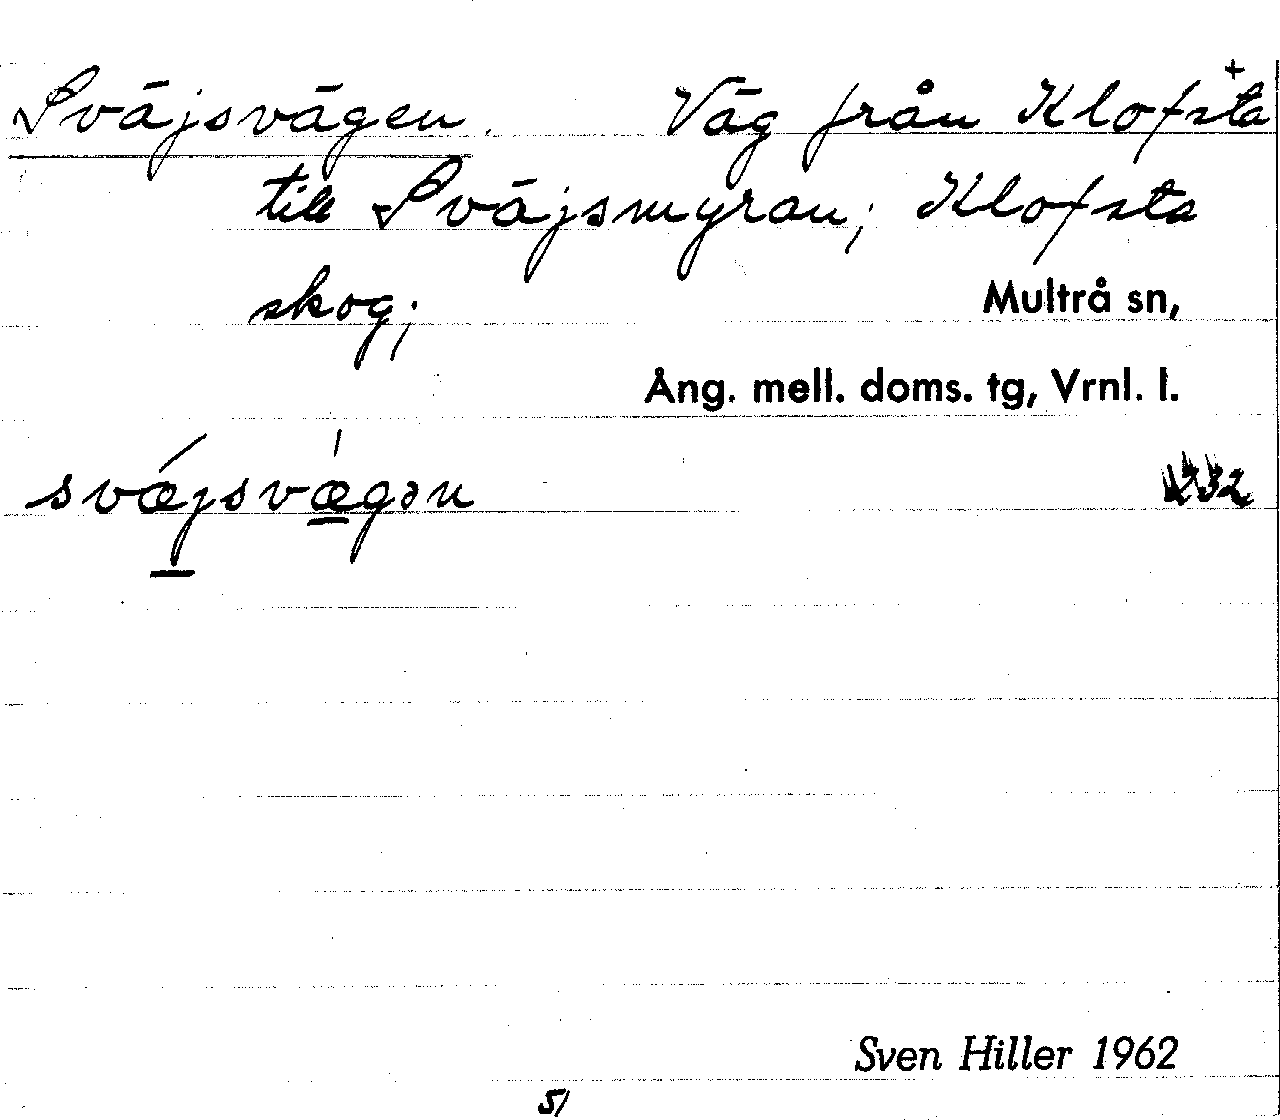 Sväjsvägen. Väg från Klofsta +
till Sväjsmyran; Klofsta
skog;
Multrå sn,
Ång. mell. doms. tg, Vrnl. l.
svǽjsvǽgən
Sven Hiller 1962
51